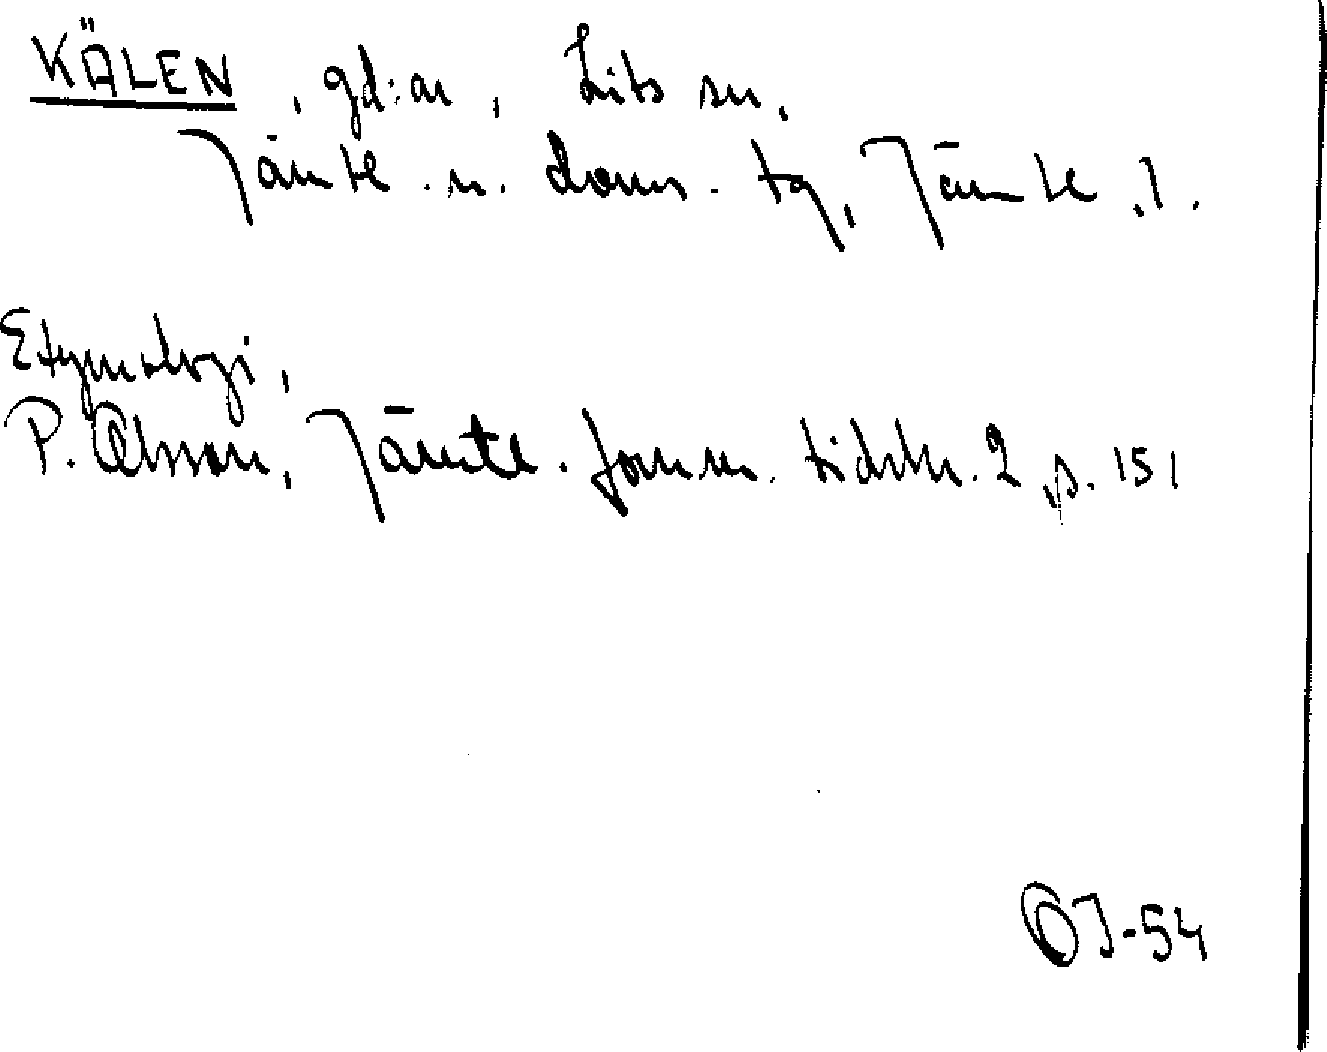 KÄLEN, gd:ar, Lits sn,
Jämtl. n. doms. tg, Jämtl. l.
Etymologi,
P. Olsson, Jämtl. fornm. tidskr. 2, s. 151
OJ-54